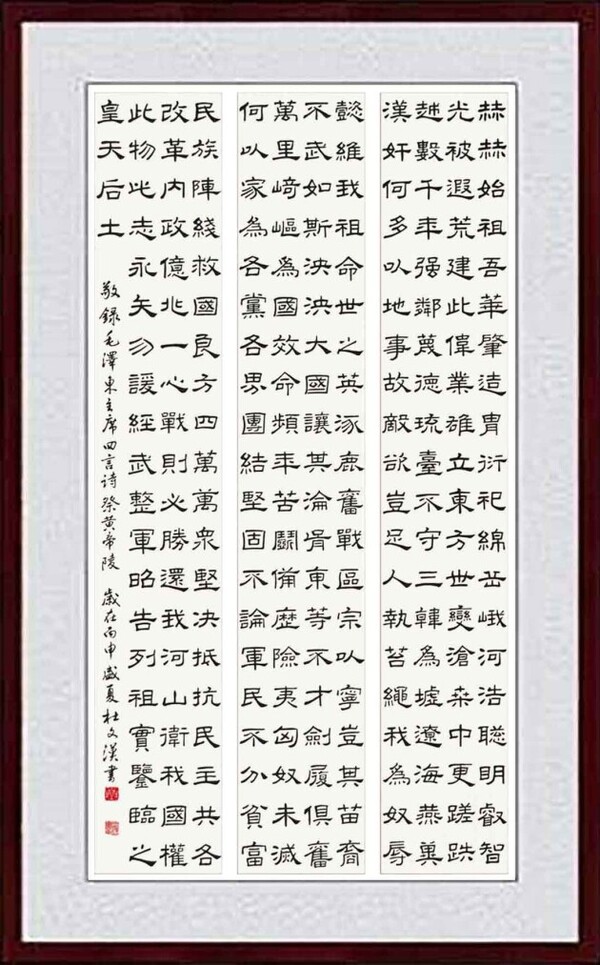 赫赫始祖吾華肇造胄衍祀綿岳峨河浩聰明叡智
光被遐荒建此偉業雄立東方世變滄桑中更蹉跌
越數千年强鄰蔑德琉臺不守三韓為墟遼海燕冀
漢奸何多以地事故敵欲豈足人執笞繩我為奴辱
懿維我祖命世之英涿鹿奮戰區宗以寧豈其苗裔
不武如斯泱泱大國讓其淪胥東等不才劍履俱奮
萬里崎嶇為國效命頻年苦鬭備歷險夷匈奴未滅
何以家為各黨各界團結堅固不論軍民不分貧富
民族陣綫救國良方四萬萬衆堅決抵抗民主共各
改革內政億兆一心戰則必勝還我河山衛我國權
此物此志永矢勿諼經武整軍昭告列祖實鑒臨之
皇天后土
敬錄毛澤東主席四言诗祭黄帝陵 歲在丙申盛夏杜文漢書